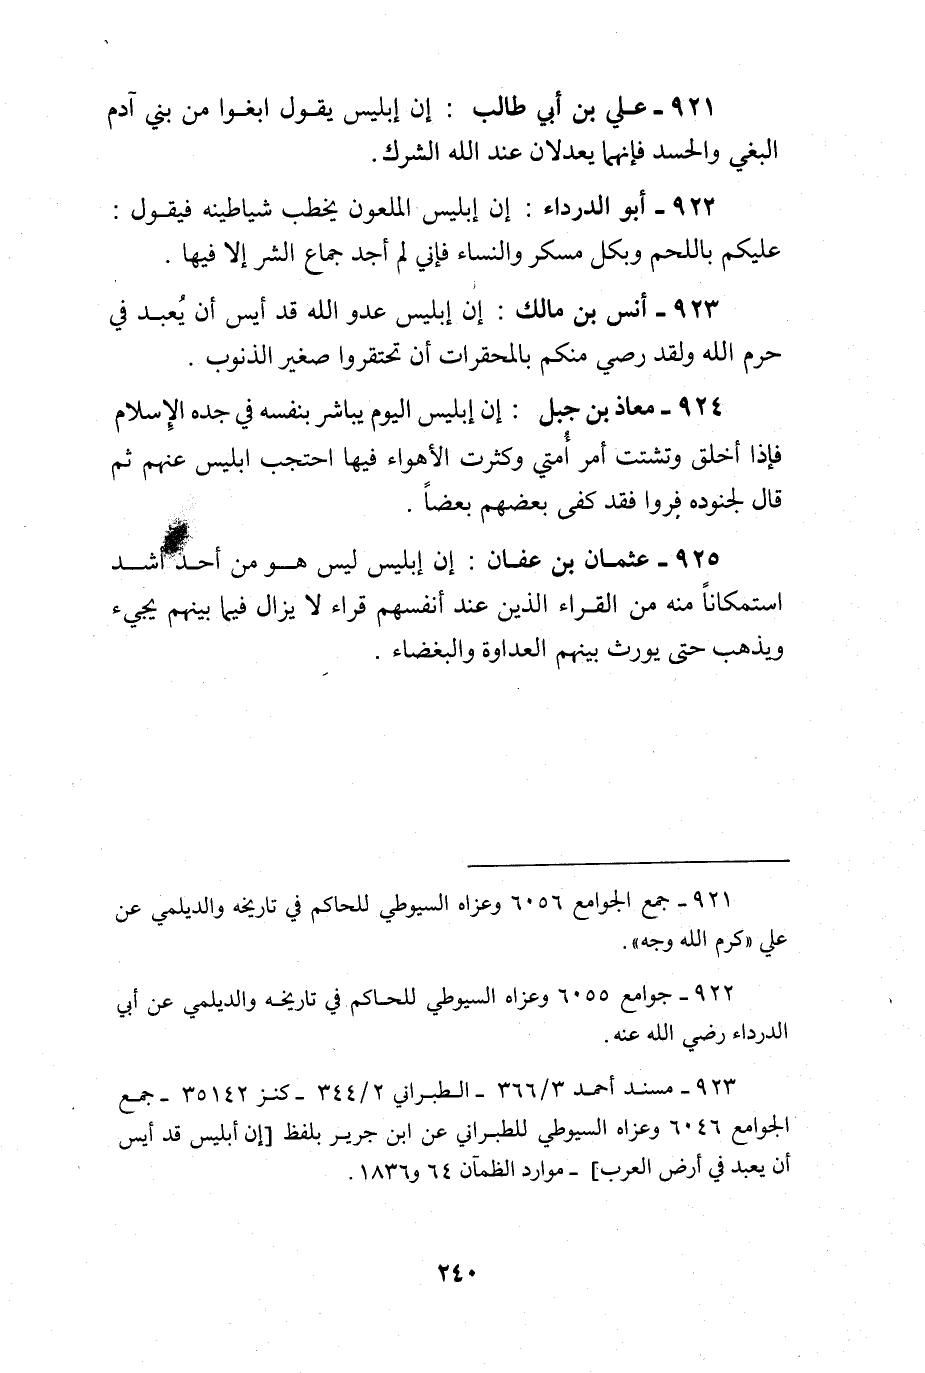 ٩٢١ ـ علي بن أبي طالب : إن إبليس يقول ابغوا من بني آدم
البغي والحسد فإنهما يعدلان عند الله الشرك.
٩٢٢ ـ أبو الدرداء : إن إبليس الملعون يخطب شياطينه فيقول :
عليكم باللحم وبكل مسكر والنساء فإني لم أجد جماع الشر إلا فيها .
٩٢٣ ـ أنس بن مالك : إن إبليس عدو الله قد أيس أن يُعبد في
حرم الله ولقد رصي منكم بالمحقرات أن تحتقروا صغير الذنوب .
٩٢٤ ـ معاذ بن جبل : إن إبليس اليوم يباشر بنفسه في جده الإسلام
فإذا أخلق وتشتت أمر أُمتي وكثرت الأهواء فيها احتجب ابليس عنهم ثم
قال لجنوده فروا فقد كفى بعضهم بعضاً .
٩٢٥ ـ عثمان بن عفان : إن إبليس ليس هو من أحد أشد
استمكاناً منه من القراء الذين عند أنفسهم قراء لا يزال فيما بينهم يجيء
ويذهب حتى يورث بينهم العداوة والبغضاء .
٩٢١ ـ جمع الجوامع ٦٠٥٦ وعزاه السيوطي للحاكم في تاريخه والديلمي عن
علي «كرم الله وجه».
٩٢٢ ـ جوامع ٦٠٥٥ وعزاه السيوطي للحاكم في تاريخه والديلمي عن أبي
الدرداء رضي الله عنه.
٩٢٣ ـ مسند أحمد ٣٦٦/٣ ـ الطبراني ٣٤٤/٢ ـ كنز ٣٥١٤٢ ـ جمع
الجوامع ٦٠٤٦ وعزاه السيوطي للطبراني عن ابن جرير بلفظ [إن أبليس قد أيس
أن يعبد في أرض العرب] ـ موارد الظمآن ٦٤ و١٨٣٦ .
٢٤٠